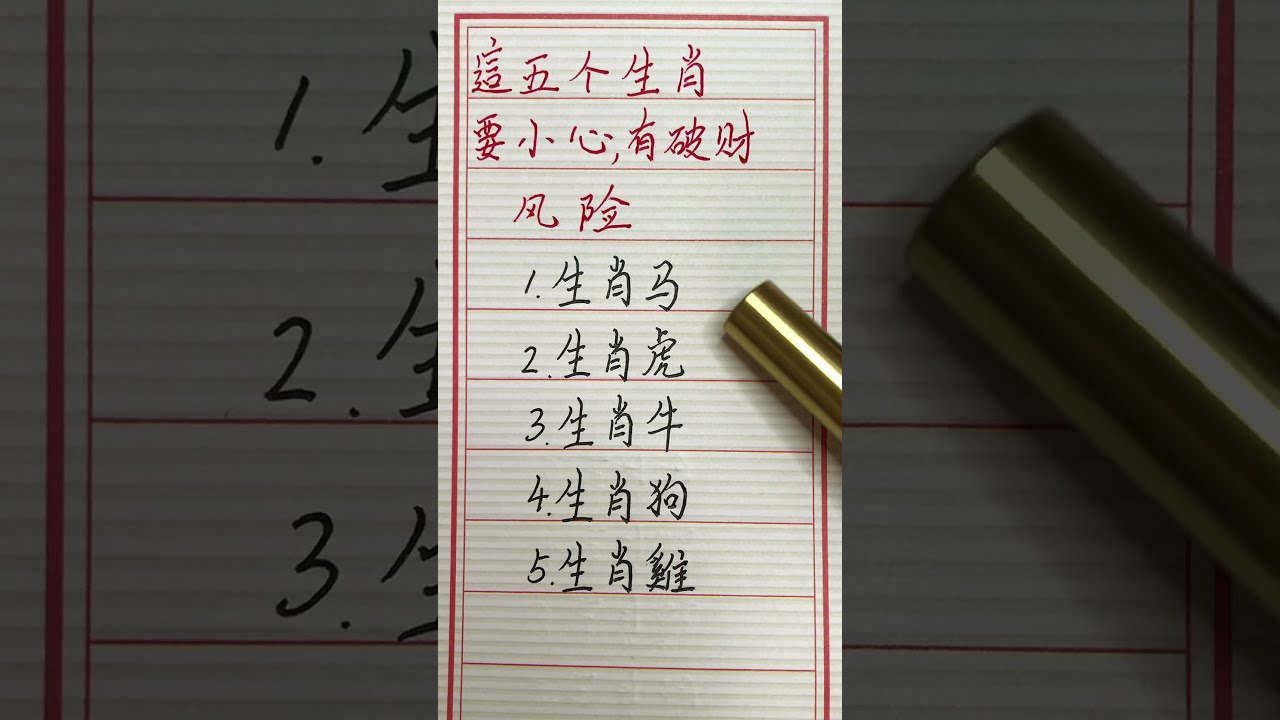 這五个生肖
要小心,有破财
风险
1.生肖马
2.生肖虎
3.生肖牛
4.生肖狗
5.生肖雞